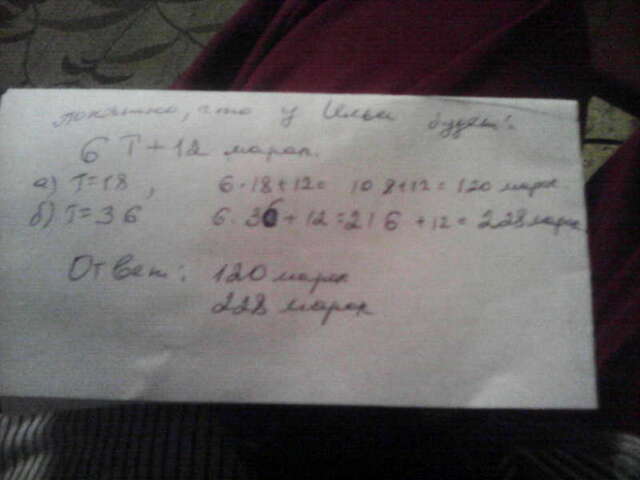 понятно, что у Ильи будет:
6 T + 12 марок.
а) T=18, 6·18+12= 108+12=120 марок
б) T=36 6·36+12=216+12=228 марок
Ответ: 120 марок
228 марок